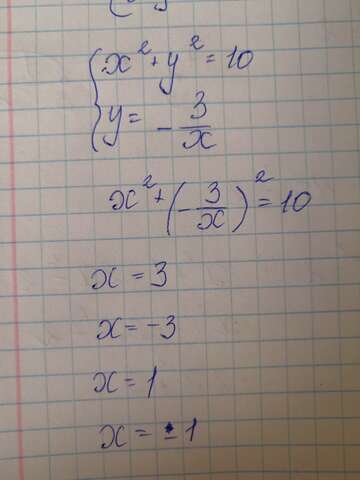 { x² + y² = 10
y = - 3/x
x² + (- 3/x)² = 10
x = 3
x = -3
x = 1
x = ±1